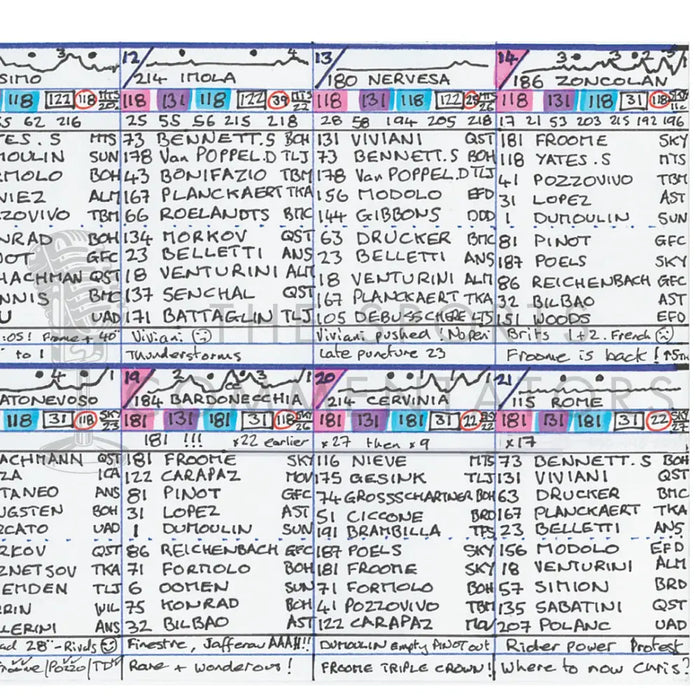 3
SIMO
118 122 118 MTS 20
35 62 216
TES.S MTS
MOULIN SUN
RMOLO BOH
NIEZ ALM
ZZOVIVO TBM
NRAD BOH
NOT GFC
HACHMAN QST
NNIS BMC
U UAD
:05! Frome + 40"
to 1
12 3 4
214 IMOLA
118 131 118 122 39 MTS 22
25 55 56 215 218
73 BENNETT.S BOH
178 Van POPPEL.D TLJ
43 BONIFAZIO TBM
167 PLANCKAERT TKA
66 ROELANDTS BMC
134 MORKOV QST
23 BELLETTI ANS
18 VENTURINI ALM
137 SENCHAL QST
171 BATTAGLIN TLJ
Viviani
Thunderstorms
13
180 NERVESA
118 131 118 122 29 MTS 22
28 58 194 205 218
131 VIVIANI QST
73 BENNETT.S BOH
178 Van POPPEL.D TLJ
156 MODOLO EFD
144 GIBBONS DDD
63 DRUCKER BMC
23 BELLETTI ANS
18 VENTURINI ALM
167 PLANCKAERT TKA
105 DEBUSSCHERE LTS
Viviani pushed
Late puncture 23
14 3 3
186 ZONCOLAN
118 131 118 31 118
17 21 53 203 215 192 196
181 FROOME SKY
118 YATES.S MTS
41 POZZOVIVO TBM
31 LOPEZ AST
1 DUMOULIN SUN
81 PINOT GFC
187 POELS SKY
86 REICHENBACH GFC
32 BILBAO AST
151 WOODS EFD
Brits 1+2. French
Froome is back! ↑5TH
4 1
ATONEVOSO
118 31 118 SKY 23
ACHMANN QST
ZA ICA
TANEO ANS
UGSTEN BOH
RCATO UAD
RKOV QST
ZNETSOV TKA
EMDEN TLJ
RRIN WIL
LLERINI ANS
ad 28" - Rivals
Froome/Pozzo/TD
19 2 2 3 1
184 BARDONECCHIA
181 181 181 31 118 SKY 26
181 !!! x22 earlier
181 FROOME SKY
122 CARAPAZ MOV
81 PINOT GFC
31 LOPEZ AST
1 DUMOULIN SUN
86 REICHENBACH GFC
71 FORMOLO BOH
6 OOMEN SUN
75 KONRAD BOH
32 BILBAO AST
Finestre, Jafferau AAAH!!!
Rare + wonderous!
20 4 1 1 1
214 CERVINIA
181 131 181 31 22
x27 then x9
116 NIEVE MTS
175 GESINK TLJ
74 GROSSSCHARTNER BOH
51 CICCONE BRD
191 BRAMBILLA TFS
187 POELS SKY
181 FROOME SKY
71 FORMOLO BOH
41 POZZOVIVO TBM
122 CARAPAZ MOV
DUMOULIN empty PINOT out
FROOME TRIPLE CROWN!
21
115 ROME
181 131 181 31 22 SKY 27
x17
73 BENNETT.S BOH
131 VIVIANI QST
63 DRUCKER BMC
167 PLANCKAERT TKA
23 BELLETTI ANS
156 MODOLO EFD
18 VENTURINI ALM
57 SIMION BRD
135 SABATINI QST
207 POLANC UAD
Rider power Protest
Where to now Chris?
THE SPORTS
COMMENTATORS